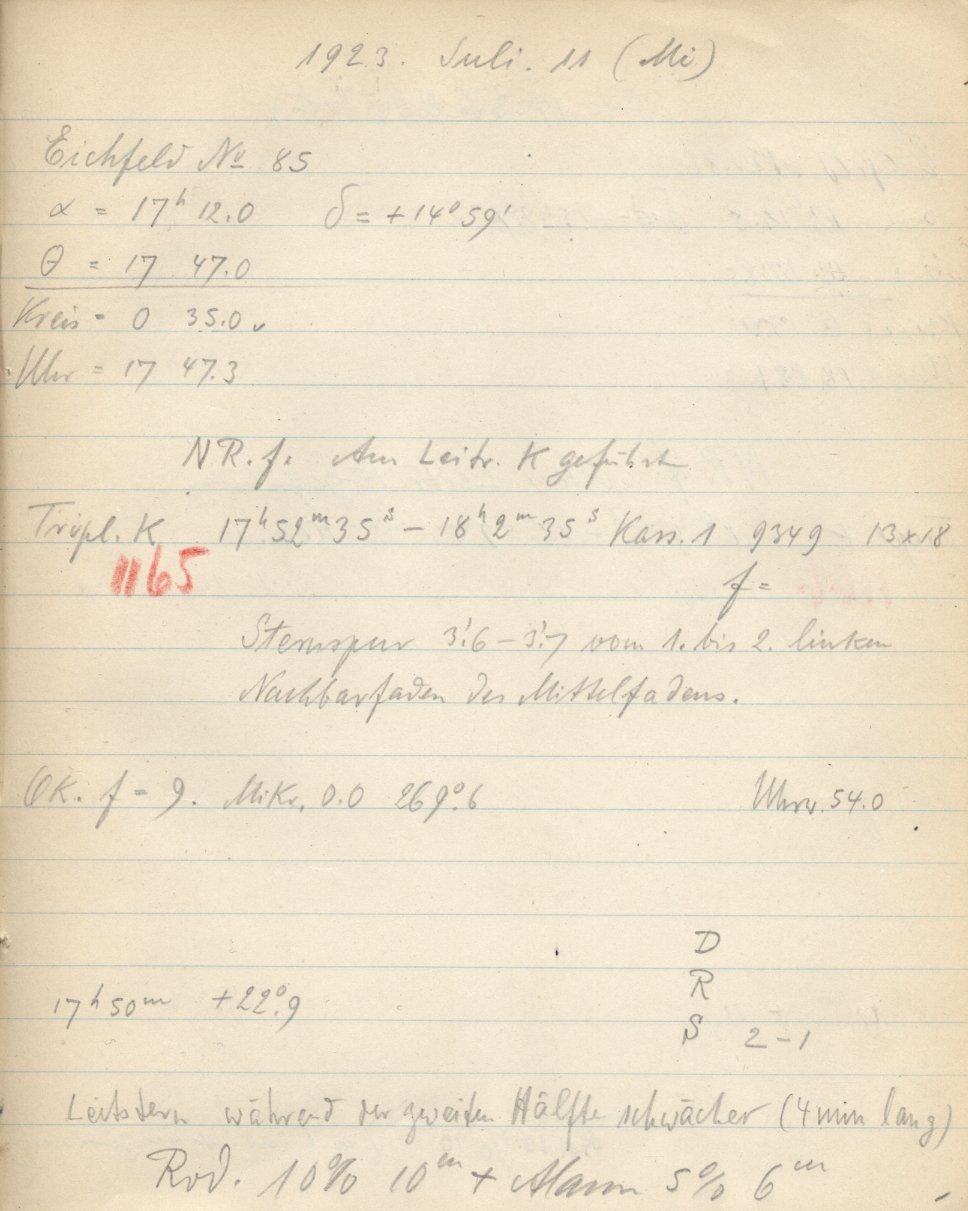 1923. Juli. 11 (Mi)
Eichfeld No 85
α = 17h 12.0 δ = +14° 59'
θ = 17 47.0
Kreis = 0 35.0
Uhr = 17 47.3
NR. f. Am Leitr. K geführt
Tripl. K 17h 52m 35s – 18h 2m 35s Kass. 1 9349 13x18
1165
f =
Sternspur 3'.6 – 3'.7 vom 1. bis 2. linken
Nachbarfaden des Mittelfadens.
OK. f = 9. Mikr. 0.0 269°.6 Uhrw. 54.0
D
R
17h 50m +22°.9
S 2–1
Leitstern während der zweiten Hälfte schwächer (4 min lang)
Rod. 10% 10m + Alaun 5% 6m